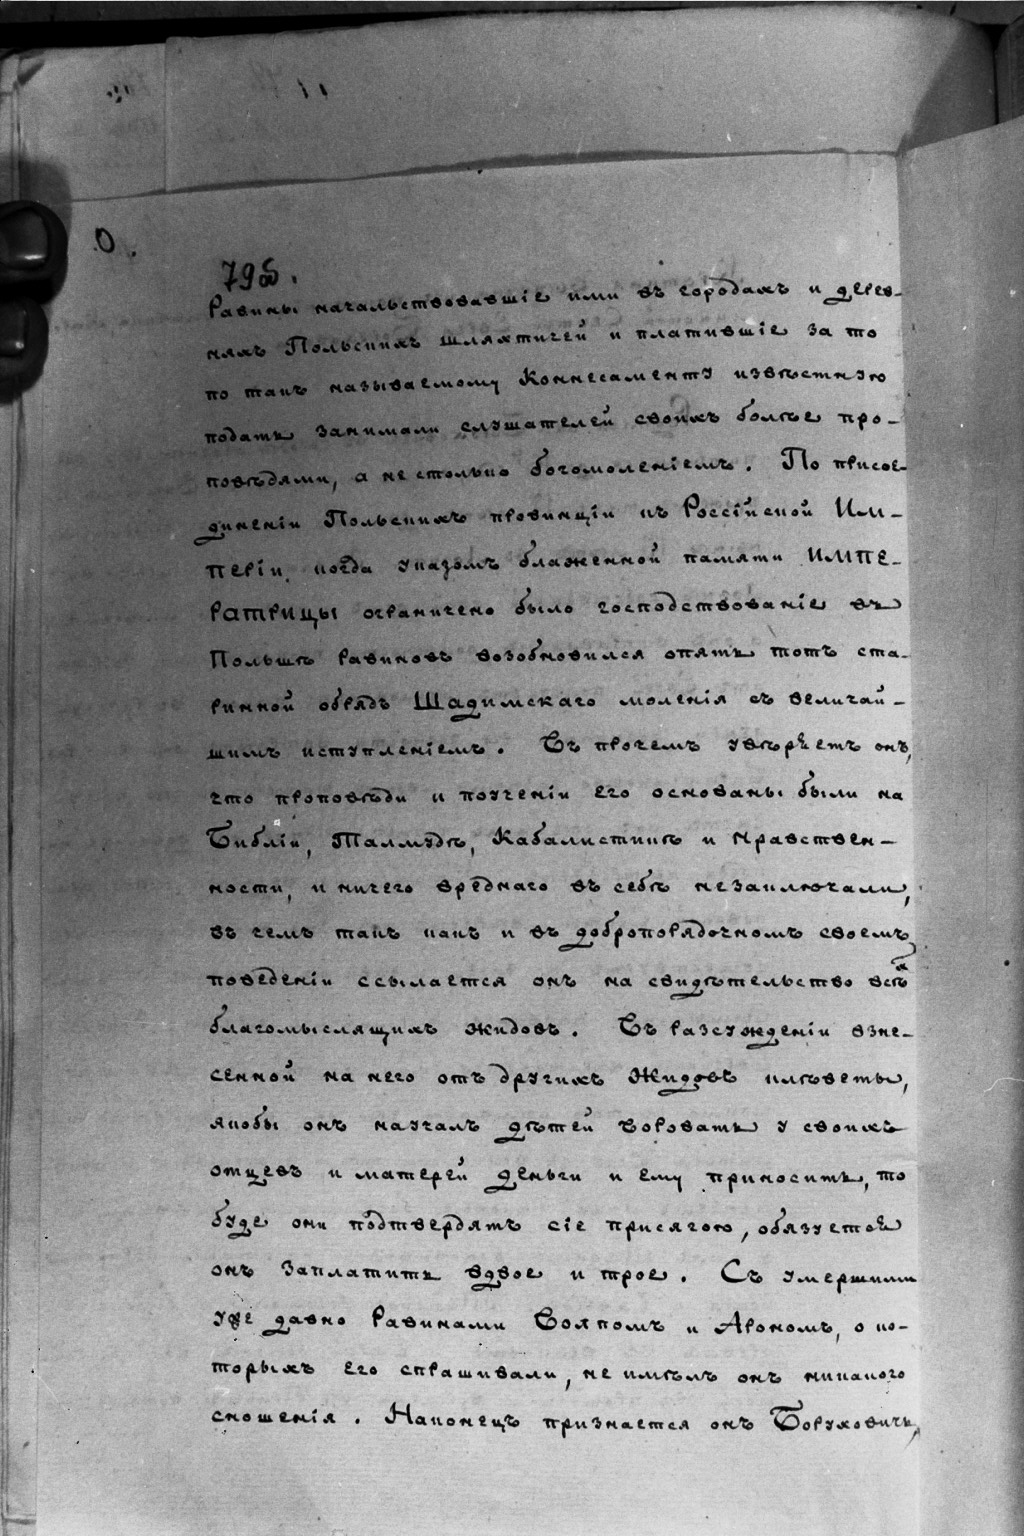 О.
79б.
Равины начальствовавшіе ими въ городахъ и дерев-
няхъ Польскихъ шляхтичей и платившіе за то
по такъ называемому Коннесаменту извѣстную
подать занимали слушателей своихъ болѣе про-
повѣдями, а не столько богомоленіемъ. По присое-
диненіи Польскихъ провинціи къ Россійской Им-
періи, когда указомъ блаженной памяти ИМПЕ-
РАТРИЦЫ ограничено было господствованіе въ
Польшѣ равиновъ возобновился опять тотъ ста-
ринной обрядъ Шадимскаго моленія съ величай-
шимъ иступленіемъ. Въ прочемъ увѣряетъ онъ,
что проповѣди и поученіи его основаны были на
Библіи, Талмудѣ, Кабалистикѣ и нравствен-
ности, и ничего вреднаго въ себѣ незаключали,
въ чемъ такъ какъ и въ добропорядочномъ своемъ
поведеніи ссылается онъ на свидѣтельство всѣхъ
благомыслящихъ жидовъ. Въ разсужденіи взне-
сенной на него отъ другихъ Жидовъ клѣветы,
якобы онъ научалъ дѣтей воровать у своихъ
отцевъ и матерей деньги и ему приносить, то
буде они подтвердятъ сіе присягою, обязуется
онъ заплатить вдвое и трое. Съ умершими
уже давно Равинами Волпомъ и Арономъ, о ко-
торыхъ его спрашивали, не имѣлъ онъ никакого
сношенія. Наконецъ признается онъ Боруховичь,